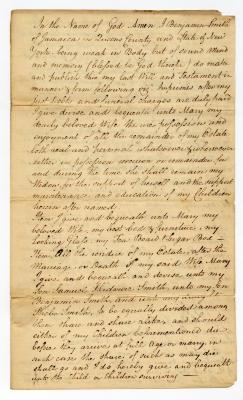 In the Name of God Amen I Benjamin Smith
of Jamaica in Queens County and State of New
York being weak in Body but of sound Mind
and memory (blessed be God therefor) do make
and publish this my last Will and Testament in
manner & form following viz. Imprimis after my
just Debts and funeral charges are duly paid
I give devise and bequeath unto Mary my
dearly beloved Wife the use possession and
enjoyment of all the remainder of my Estate
both real and personal whatsoever & wheresoever
either in possession reversion or remainder for
and during the time she shall remain my
Widow, for the support of herself and the support
maintenance and education of my Children
herein after named
Item I give and bequeath unto Mary my
beloved Wife, my best bed & furniture, my
looking Glass, my Tea Board & Sugar Box
Item, All the residue of my Estate, after the
Marriage or Death of my said Wife Mary
I give and bequeath and devise unto my
Son Samuel Smith, unto my Son
Benjamin Smith, and unto my
Smith, to be equally divided among
them share and share alike, and should
either of my Children beforementioned die
before they arrive at full Age or marry, in
such case the share of such as may die
shall go and I do hereby give and bequeath
unto the Child or Children surviving